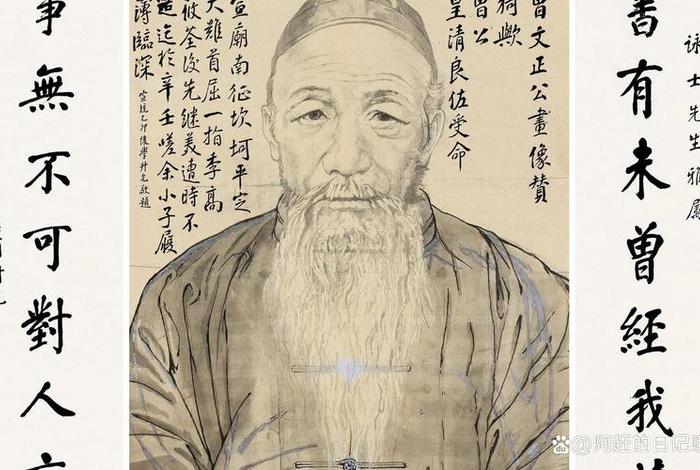 詠士先生雅屬
書有未曾經我
曾文正公畫像贊
猗歟
曾公
皇清良佐受命
宣廟南征坎坷平定
大難首屈一指李高
攸荃後先继美遭時不
造迄於辛壬嗟余小子履
薄臨深
宣統乙卯後學升允敬題
事無不可對人
@阿赶的日记